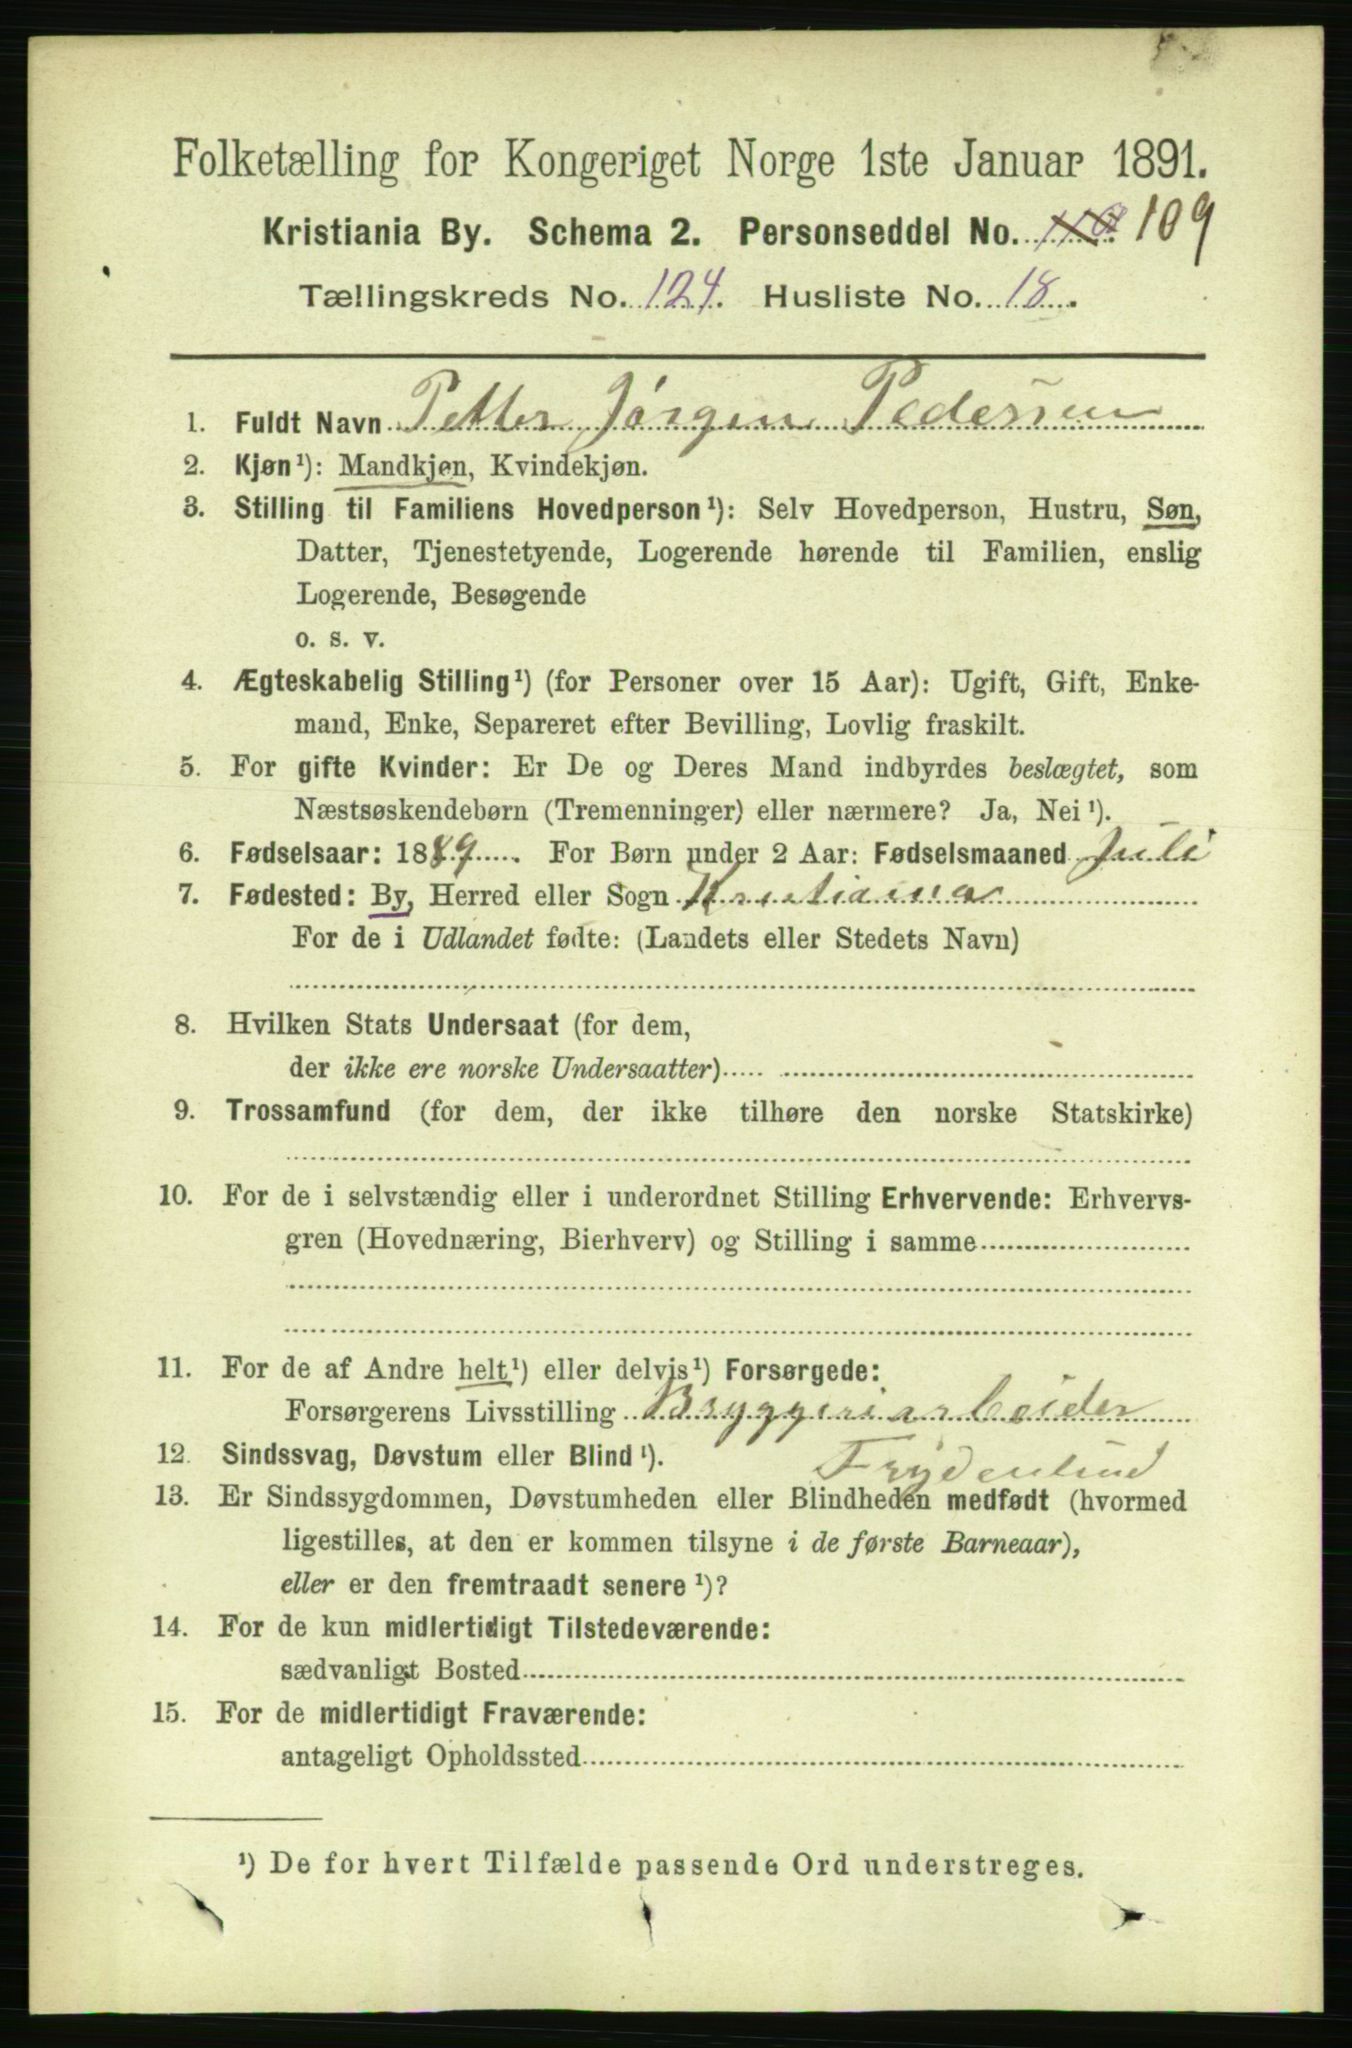 Folketælling for Kongeriget Norge 1ste Januar 1891.
Kristiania By. Schema 2. Personseddel No. 110 109
Tællingskreds No. 124. Husliste No. 18.
1. Fuldt Navn Petter Jørgen Pedersen
2. Kjøn¹): Mandkjøn, Kvindekjøn.
3. Stilling til Familiens Hovedperson¹): Selv Hovedperson, Hustru, Søn,
Datter, Tjenestetyende, Logerende hørende til Familien, enslig
Logerende, Besøgende
o. s. v.
4. Ægteskabelig Stilling¹) (for Personer over 15 Aar): Ugift, Gift, Enke-
mand, Enke, Separeret efter Bevilling, Lovlig fraskilt.
5. For gifte Kvinder: Er De og Deres Mand indbyrdes beslægtet, som
Næstsøskendebørn (Tremenninger) eller nærmere? Ja, Nei¹).
6. Fødselsaar: 1889. For Børn under 2 Aar: Fødselsmaaned Juli
7. Fødested: By, Herred eller Sogn Kristiania
For de i Udlandet fødte: (Landets eller Stedets Navn)
8. Hvilken Stats Undersaat (for dem,
der ikke ere norske Undersaatter)
9. Trossamfund (for dem, der ikke tilhøre den norske Statskirke)
10. For de i selvstændig eller i underordnet Stilling Erhvervende: Erhvervs-
gren (Hovednæring, Bierhverv) og Stilling i samme
11. For de af Andre helt¹) eller delvis¹) Forsørgede:
Forsørgerens Livsstilling Bryggeriarbeider
12. Sindssvag, Døvstum eller Blind¹). Frydenlund
13. Er Sindssygdommen, Døvstumheden eller Blindheden medfødt (hvormed
ligestilles, at den er kommen tilsyne i de første Barneaar),
eller er den fremtraadt senere¹)?
14. For de kun midlertidigt Tilstedeværende:
sædvanligt Bosted
15. For de midlertidigt Fraværende:
antageligt Opholdssted
¹) De for hvert Tilfælde passende Ord understreges.